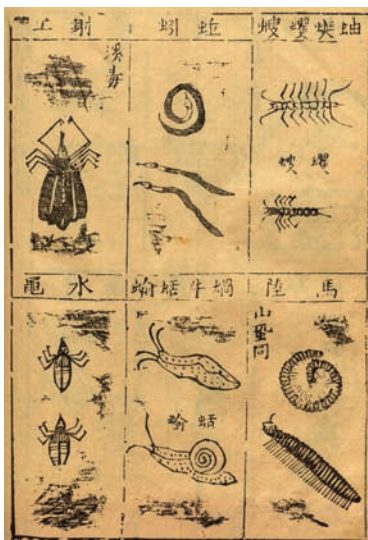 蚰蜒蠷螋
蠷螋
蚯蚓
射工
溪毒
馬陸
山蛩同
蝸牛蛞蝓
蛞蝓
水黽